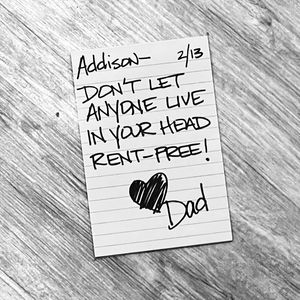 Addison- 2/13
DON'T LET
ANYONE LIVE
IN YOUR HEAD
RENT-FREE!
Dad